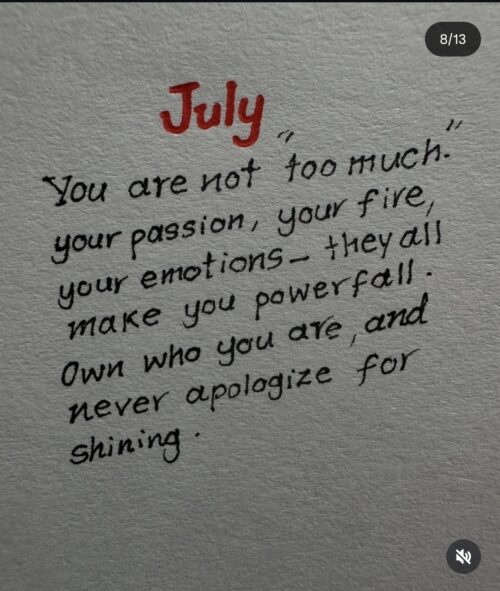 8/13
July
You are not "too much."
your passion, your fire,
your emotions - they all
make you powerfall.
Own who you are, and
never apologize for
shining.